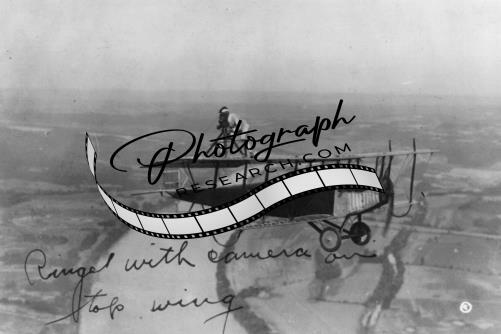 Photograph
RESEARCH.COM
Ringel with camera on
top wing